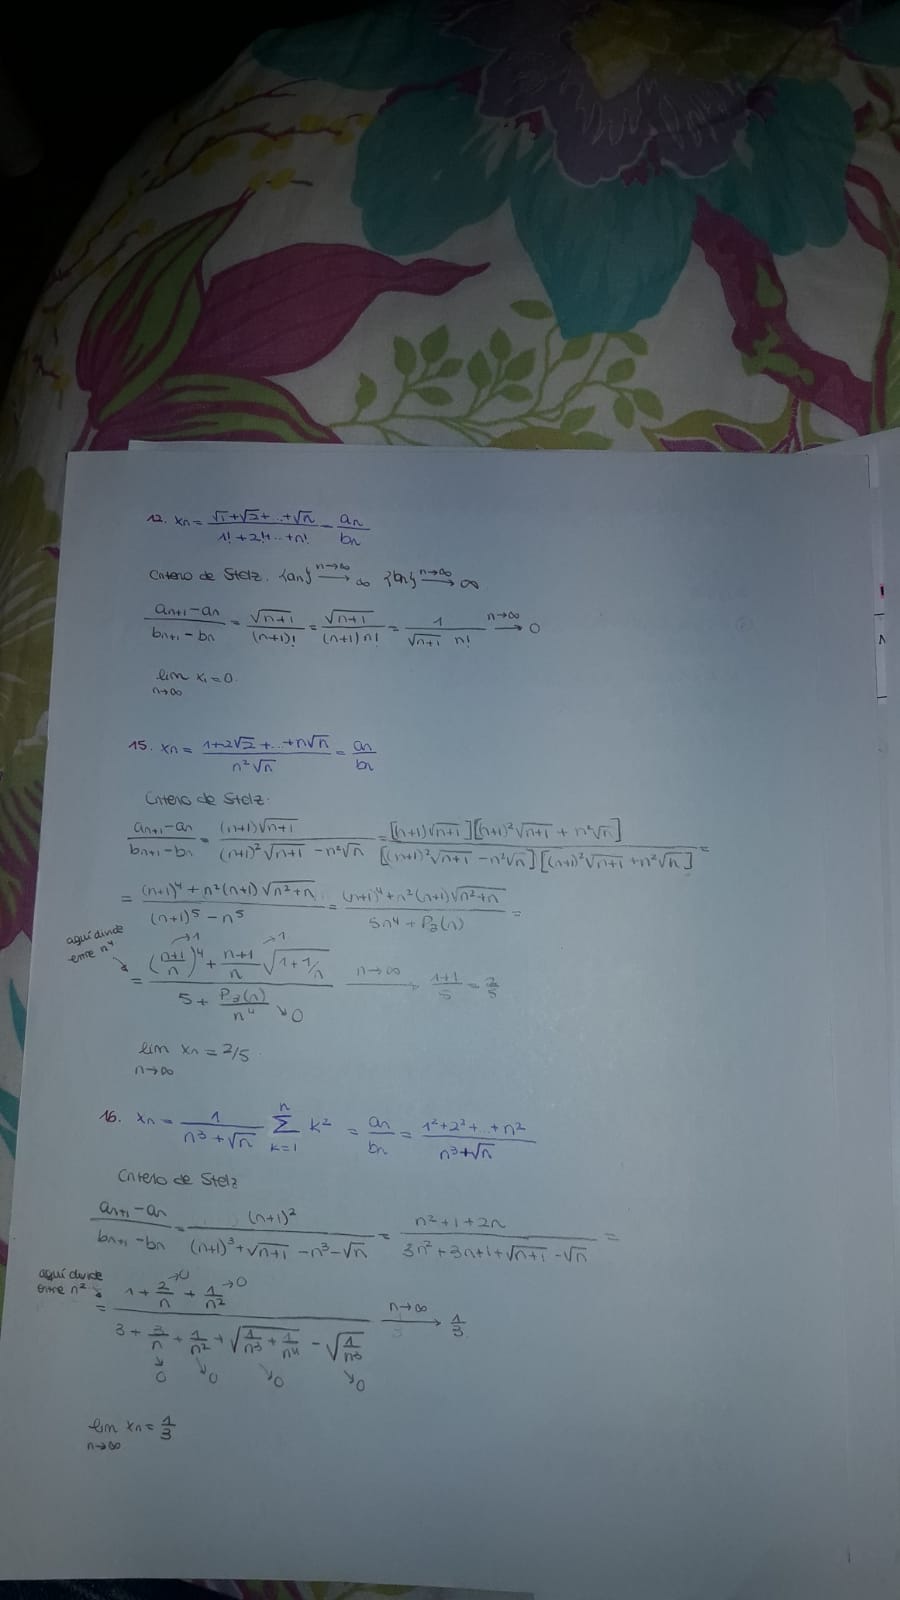 12. xn = (√1+√2+...+√n)/(1!+2!+...+n!) = an/bn
Criterio de Stolz. {an} n→∞ → ∞ {bn} n→∞ → ∞
(an+1 - an)/(bn+1 - bn) = √(n+1)/(n+1)! = √(n+1)/((n+1) n!) = 1/(√(n+1) n!) n→∞ → 0
lim n→∞ xn = 0
15. xn = (1+2√2+...+n√n)/(n²√n) = an/bn
Criterio de Stolz:
(an+1 - an)/(bn+1 - bn) = (n+1)√(n+1)/((n+1)²√(n+1) - n²√n) = [(n+1)√(n+1)][(n+1)²√(n+1) + n²√n]/([(n+1)²√(n+1) - n²√n][(n+1)²√(n+1) + n²√n]) =
= ((n+1)⁴ + n²(n+1)√(n²+n))/((n+1)⁵ - n⁵) = ((n+1)⁴ + n²(n+1)√(n²+n))/(5n⁴ + P₃(n)) =
aquí divide entre n⁴
= (((n+1)/n)⁴ →1 + (n+1)/n √(1+1/n) →1)/(5 + P₃(n)/n⁴ →0) n→∞ → (1+1)/5 = 2/5
lim n→∞ xn = 2/5
16. xn = 1/(n³+√n) Σ k=1 n k² = an/bn = (1²+2²+...+n²)/(n³+√n)
Criterio de Stolz
(an+1 - an)/(bn+1 - bn) = (n+1)²/((n+1)³+√(n+1) - n³ - √n) = (n²+1+2n)/(3n²+3n+1+√(n+1) - √n) =
aquí divide entre n²
= (1 + 2/n →0 + 1/n² →0)/(3 + 3/n →0 + 1/n² →0 + √(1/n³ + 1/n⁴) →0 - √(1/n³) →0) n→∞ → 1/3
lim n→∞ xn = 1/3